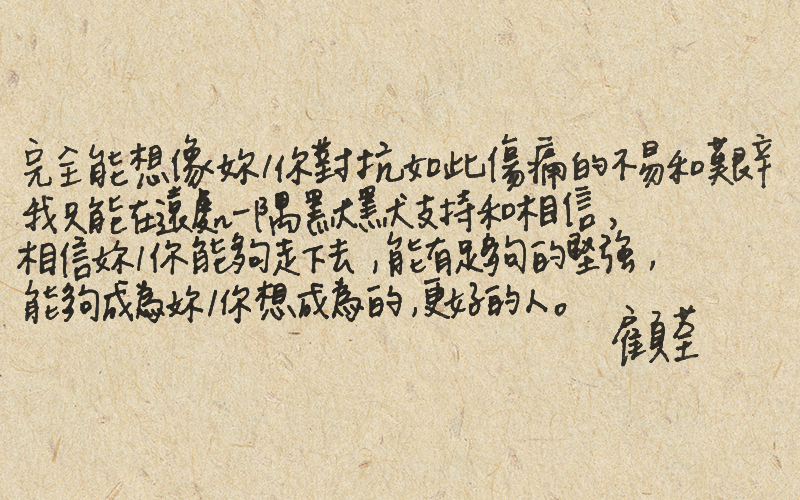 完全能想像妳/你對抗如此傷痛的不易和艱辛
我只能在遠處一隅默默支持和相信，
相信妳/你能夠走下去，能有足夠的堅強，
能夠成為妳/你想成為的，更好的人。
顧荃